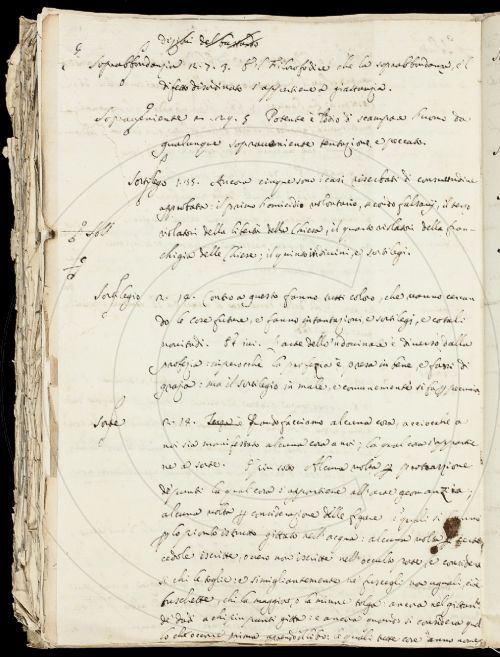 Soprabbondanza n. 7. 3. E il Filosofo dice che la soprabbondanza, e'l
difetto disordinato s'appartiene a
Sopravveniente n. 5 Potente è Iddio di scampare l'uomo da
qualunque sopravveniente tentazione e peccato.
Sortilego 1.35. Ancora cinque sono i casi riserbati di consuetudine
approvata: il primo homicidio volontario, a
violatori della libertà della Chiesa, il quarto violatori della fran-
chigia delle Chiese; il quinto indivini, e sortilegi.
Sortilegio n. 14. Contro a questo fanno tutti coloro, che vanno cercan
do le cose future, e fanno incantazioni e sortilegi, e cotali
novitadi. Et ivi. L'arte dello 'ndovinare è diverso dalla
profezia: imperocchè la profezia è presa in bene, e fassi di
grazia: ma il sortilegio in male, e comunemente si fa per pecunia
Sorte n. 18. Quando facciamo alcuna cosa, acciocchè a
noi sia manifestato alcuna cosa a noi; la qual cosa s'appartie
ne a sorte. E più sotto Alcuna volta per protrazzione
de' punti la qual cosa s'appartiene all'arte geomanzia;
alcuna volta per considerazione delle figure i quali si
per lo piombo istrutto gittato nell'acqua: alcuna volta
cedole iscritte, ovvero non iscritte nell'occulto poste, e considera
si chi la toglie: e simigliantemente ne' fuscegli non uguali, cioè
buschette, chi la maggiore, o la minore tolga: ancora nel gittare
de' dadi a chi più punti gitta: e ancora quando si considera quel
lo che occorre prima aprendo libro: le quali tutte cose anno nome